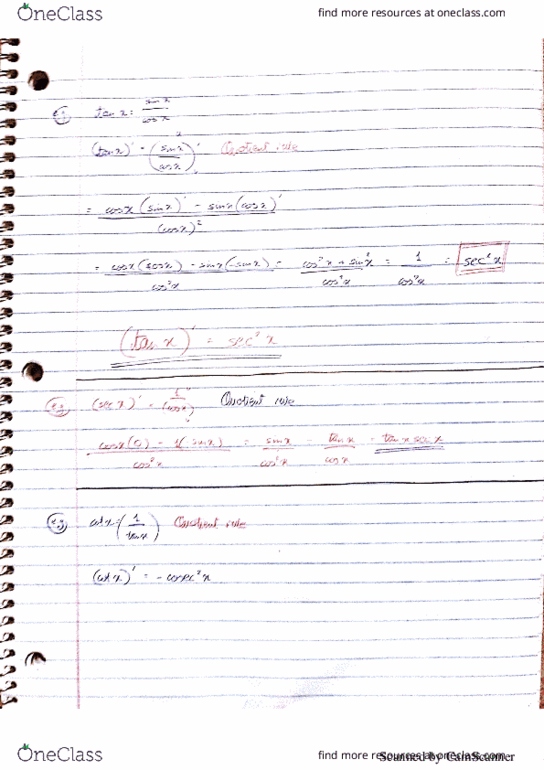 OneClass
find more resources at oneclass.com
e.g. tan x = sin x / cos x
(tan x)' = (sin x / cos x)' Quotient rule
= cos x (sin x)' - sin x (cos x)' / (cos x)²
= cos x (cos x) - sin x (-sin x) / cos² x = cos² x + sin² x / cos² x = 1 / cos² x = sec² x
(tan x)' = sec² x
e.g. (sec x)' = (1 / cos x)' Quotient rule
cos x (0) - 1(-sin x) / cos² x = sin x / cos² x = tan x / cos x = tan x sec x
e.g. cot x = (1 / tan x) Quotient rule
(cot x)' = - cosec² x
OneClass
find more resources at oneclass.com
Scanned by CamScanner